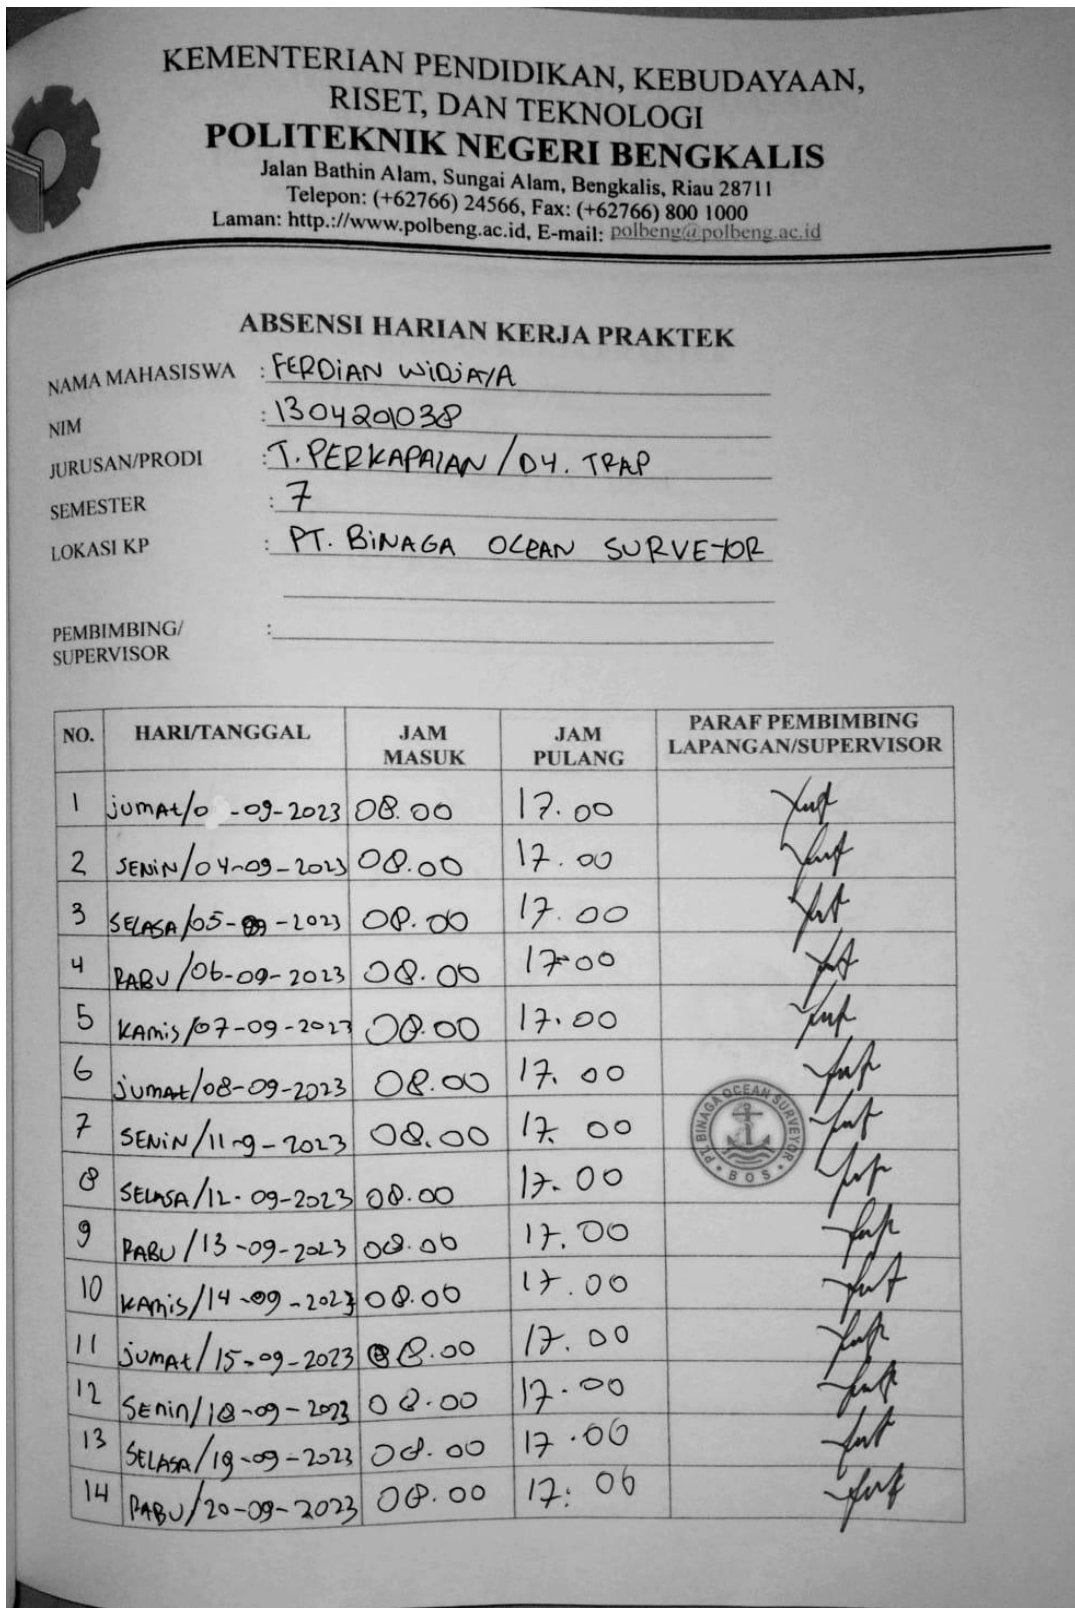 KEMENTERIAN PENDIDIKAN, KEBUDAYAAN,
RISET, DAN TEKNOLOGI
POLITEKNIK NEGERI BENGKALIS
Jalan Bathin Alam, Sungai Alam, Bengkalis, Riau 28711
Telepon: (+62766) 24566, Fax: (+62766) 800 1000
Laman: http.://www.polbeng.ac.id, E-mail: polbeng@polbeng.ac.id
ABSENSI HARIAN KERJA PRAKTEK
NAMA MAHASISWA : FERDiAN WiDjAYA
NIM : 1304201038
JURUSAN/PRODI : T. PERKAPALAN / D4. TRAP
SEMESTER : 7
LOKASI KP : PT. BiNAGA OCEAN SURVEYOR
PEMBIMBING/ :
SUPERVISOR
NO. HARI/TANGGAL JAM MASUK JAM PULANG PARAF PEMBIMBING LAPANGAN/SUPERVISOR
1 jUMAt/0 -09-2023 08.00 17.00
2 SENiN/04-09-2023 08.00 17.00
3 SELASA/05-09-2023 08.00 17.00
4 RABU/06-09-2023 08.00 17.00
5 KAMiS/07-09-2023 08.00 17.00
6 jUMAt/08-09-2023 08.00 17.00
7 SENiN/11-9-2023 08.00 17.00
8 SELASA/12-09-2023 08.00 17.00
9 RABU/13-09-2023 08.00 17.00
10 KAMiS/14-09-2023 08.00 17.00
11 jUMAt/15-09-2023 08.00 17.00
12 SEnin/18-09-2023 08.00 17.00
13 SELASA/19-09-2023 08.00 17.00
14 RABU/20-09-2023 08.00 17:00
PT. BINAGA OCEAN SURVEYOR
B O S